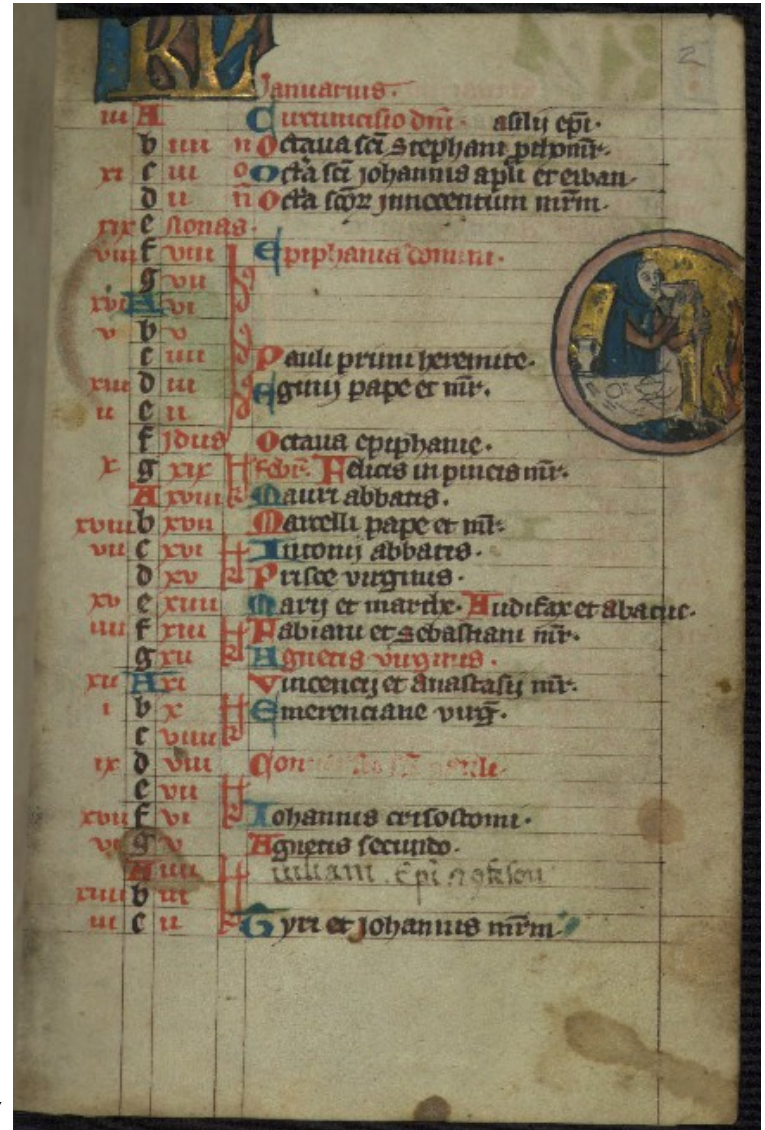 KL
2
Januarius.
iii A Circumcisio dn̄i. asilij ep̄i.
b iiii n Octaua sc̄i Stephani
xi c iii o Oct̄a sc̄i johannis ap̄li et ewan
d ii n̄ Oct̄a sc̄or̄ jnnocentum mr̄m.
xix e nonas.
viii f viii Epiphania domini.
g vii
xvi A vi
v b v
c iiii Pauli primi heremite.
xiii d iii Eginij pape et mr̄.
ii e ii
f jdus Octaua epiphanie.
x g xix febr̄. Felicis in pincis mr̄.
A xviii Mauri abbatis.
xviii b xvii Marcelli pape et mr̄.
vii c xvi Antonij abbatis.
d xv Prisce virginis.
xv e xiiii Marij et marthe. Audifax et abacuc.
iiii f xiii Fabiani et Sebastiani mr̄.
g xii Agnetis virginis.
xii A xi Vincencij et Anastasij mr̄.
i b x Emerenciane virḡ.
c viiii
ix d viii Con
e vii
xvii f vi Iohannis crisostomi.
vi g v Agnetis secundo.
A iiii iuliani . ēpi
xiiii b iii
iii c ii Cyri et Johannis mr̄m.